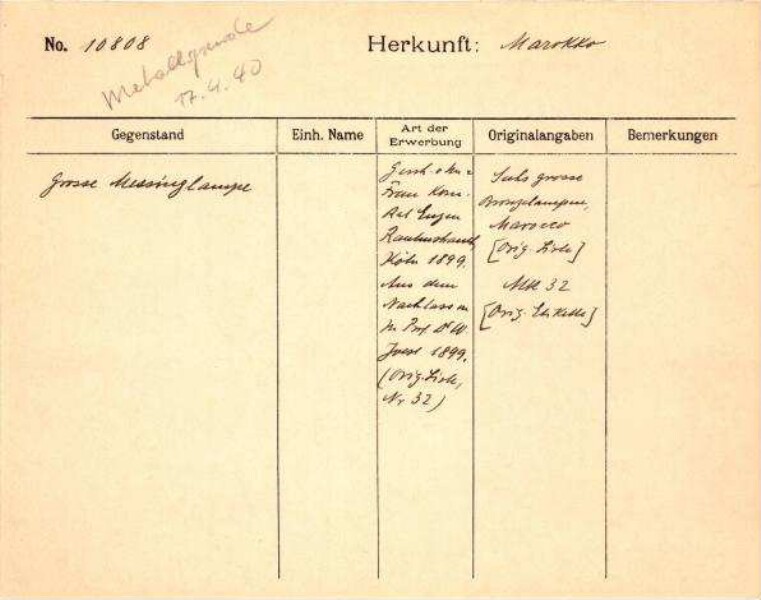 No. 10808
Herkunft: Marokko
Metallspende
17.4.40
Gegenstand
Einh. Name
Art der Erwerbung
Originalangaben
Bemerkungen
Grosse Messinglampe
Gesch. v.
Frau Kom.
Rat Eugen
Rautenstrauch,
Köln 1899.
Aus dem
Nachlass
Prof. Dr W.
Joest 1899.
(Orig. Liste,
Nr 32)
Sechs grosse
Bronzelampen,
Marocco
[Orig. Liste]
32
[Orig. Etikette]